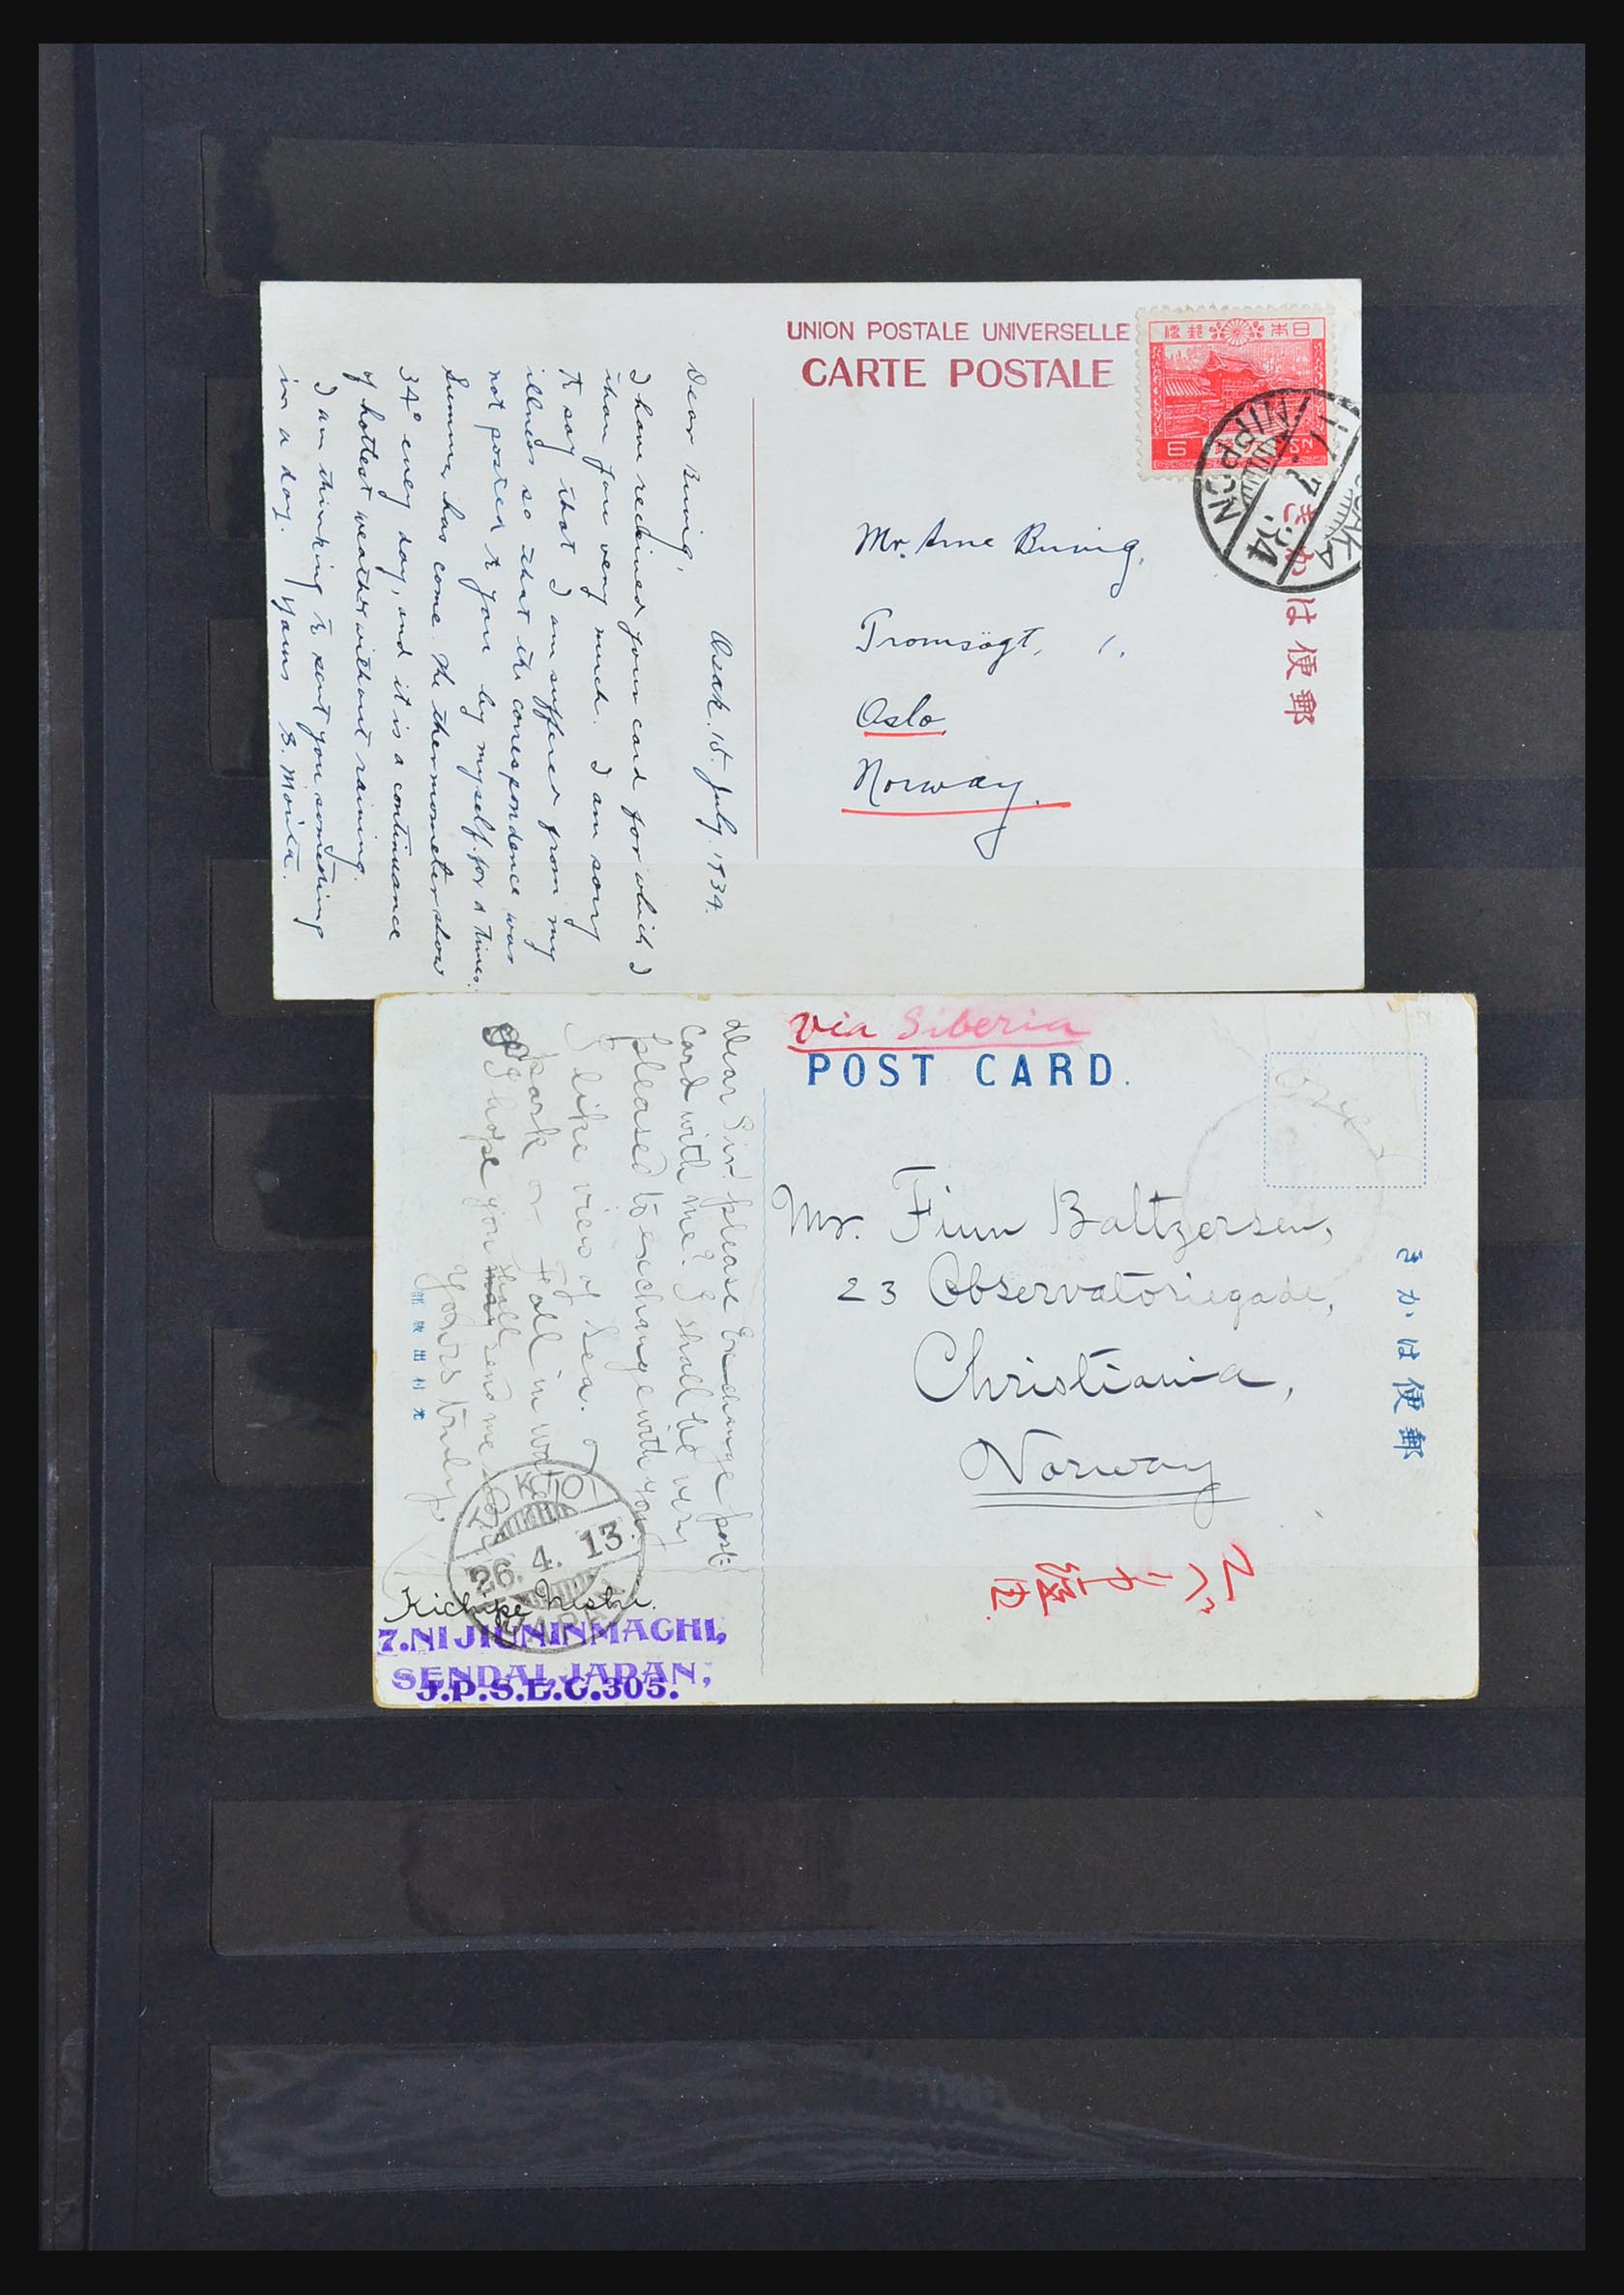 UNION POSTALE UNIVERSELLE
CARTE POSTALE
便郵本日
6
NIPPON
17.7.34
きかは便郵
Mr. Arne Bruvig.
Tromsögt. 1.
Oslo
Norway.
Osak. 15. July. 1934.
Dear Bruvig,
I have recieved your card for which I
than you very much. I am sorry
to say that I am suffered from my
illness so that the correspondence was
not posted to you by myself for a times.
Summer has come. The thermometer show
34° every day, and it is a continuance
of hottest weather without raining.
I am thinking to sent you someting
in a day. Yours S. Morita.
via Siberia
POST CARD.
きかは便郵
Mr. Finn Baltzersen,
23 Observatoriegade,
Christiania,
Norway
dear Sir! please Exchange post:
Card with me? I shall be very
pleased to exchange with you.
I like view of Sea. or
park or Fall in water
I hope you shall send me
Yours truly.
TOKIO
26.4.13
JAPAN
Kichi Nishi.
7.NIJIUNINMACHI,
SENDAI, JAPAN,
J.P.S.L.C.305.